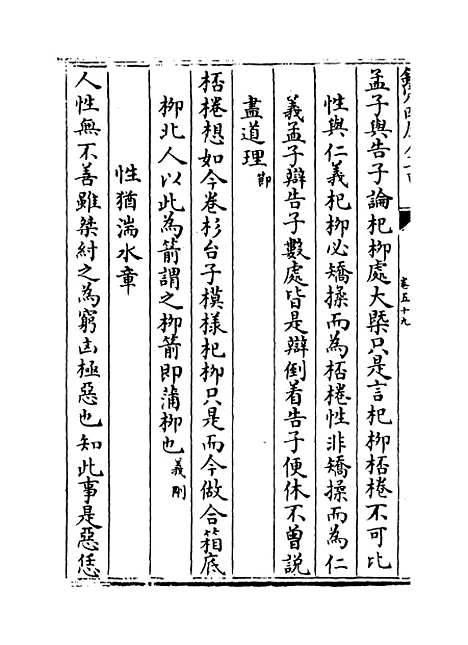 欽定四庫全書
卷五十九
孟子與告子論杞柳處大槩只是言杞柳桮棬不可比
性與仁義杞柳必矯揉而為桮棬性非矯揉而為仁
義孟子辯告子數處皆是辯倒着告子便休不曾說
盡道理節
桮棬想如今卷杉台子模様杞柳只是而今做合箱底
柳北人以此為箭謂之柳箭即蒲柳也義剛
性猶湍水章
人性無不善雖桀紂之為窮凶極惡也知此事是惡恁